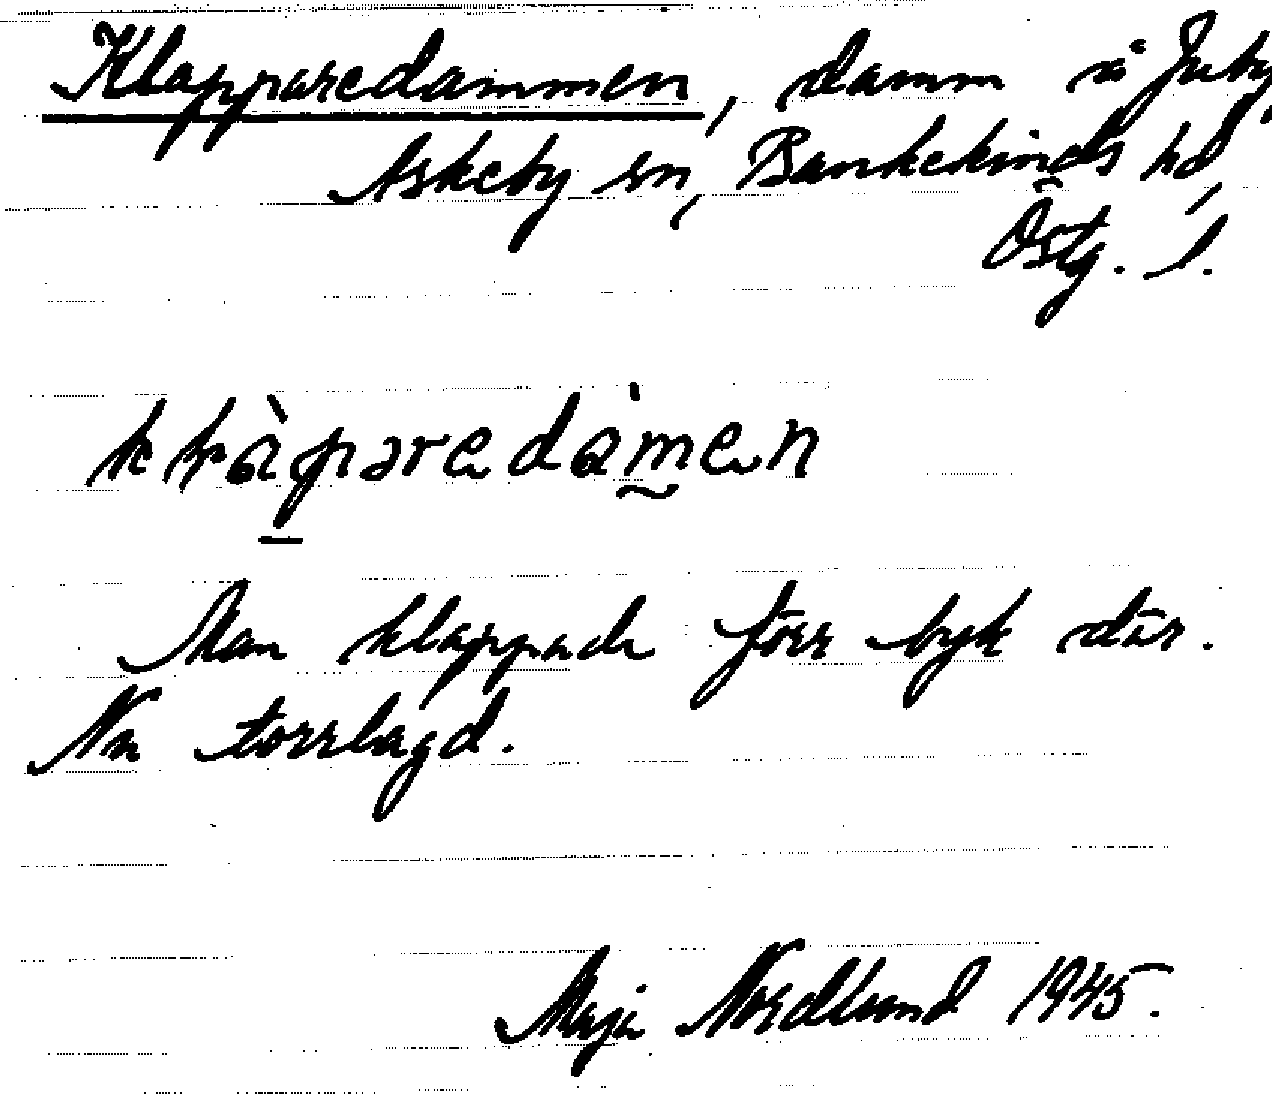 Klapparedammen, damm å Juby,
Askeby sn, Bankekinds hd,
Östg. l.
kɫàparedàmen
Man klappade förr byk där.
Nu torrlagd.
Maja Nordlund 1945.